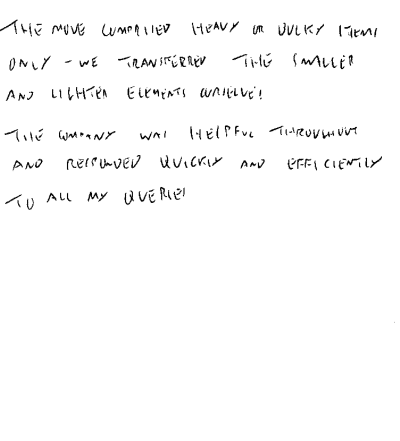 THE MOVE COMPRISED HEAVY OR BULKY ITEMS
ONLY - WE TRANSFERRED THE SMALLER
AND LIGHTER ELEMENTS OURSELVES
THE COMPANY WAS HELPFUL THROUGHOUT
AND RESPONDED QUICKLY AND EFFICIENTLY
TO ALL MY QUERIES